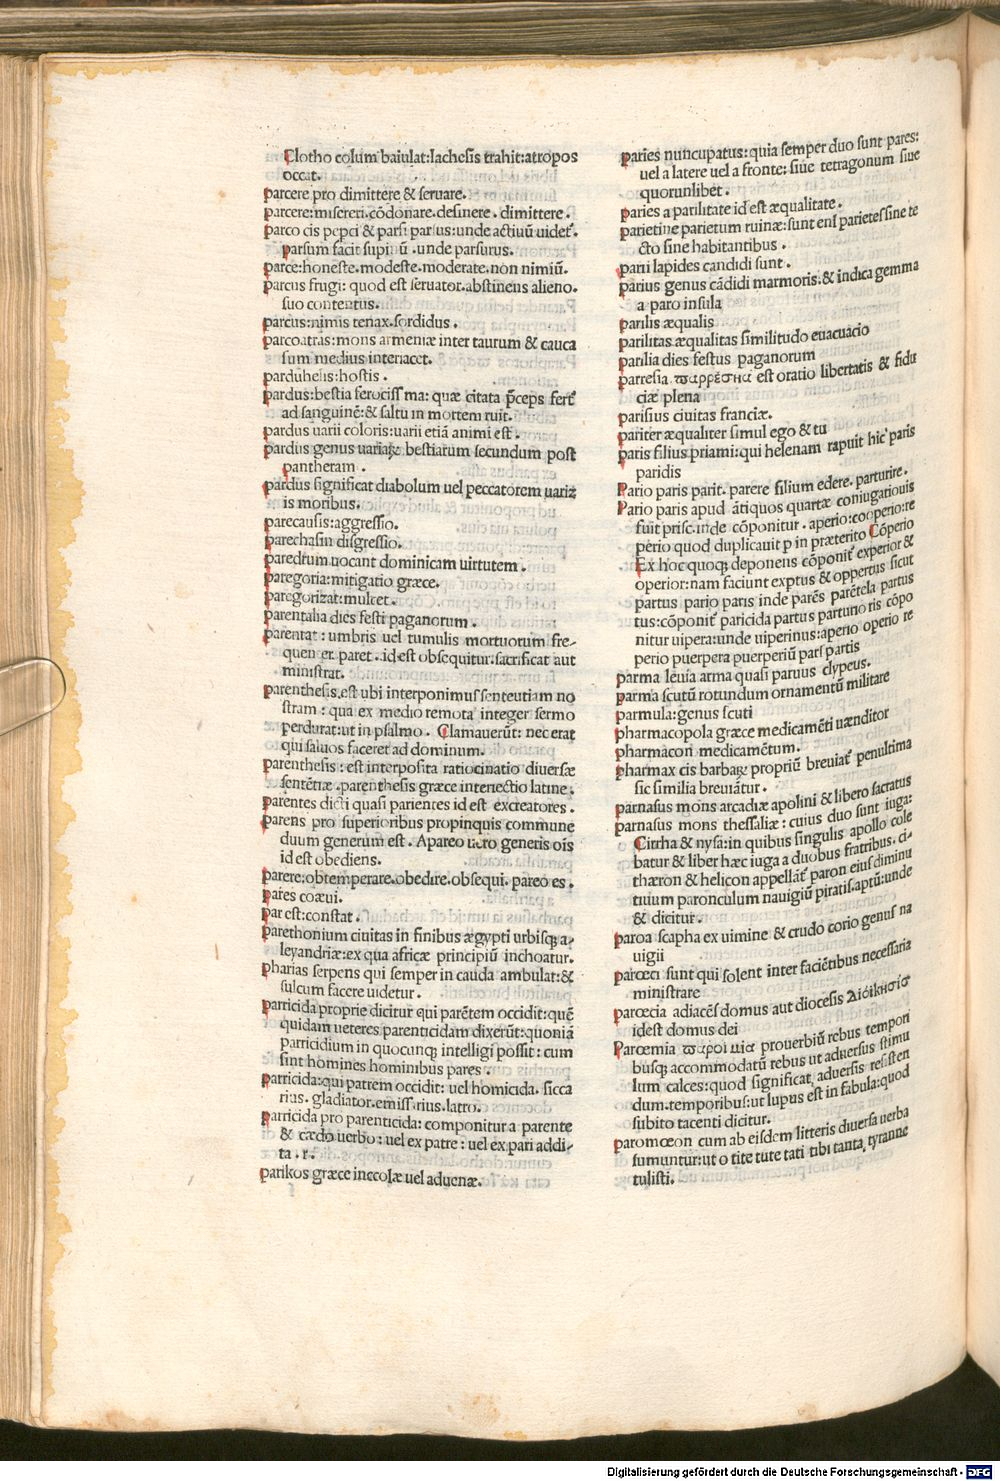 Clotho colum baiulat:lachesis trahit:atropos
occat.
parcere pro dimittere & seruare.
parcere:misereri.cōdonare.desinere. dimittere.
parco cis peperci & parsi parsus:unde actiuū uidet᷑.
parsum facit supinū .unde parsurus.
parce:honeste.modeste.moderate.non nimiū.
parcus frugi: quod est seruator.abstinens alieno.
suo contentus.
parcus:nimis tenax.sordidus.
parcoatras:mons armeniæ inter taurum & cauca
sum medius interiacet.
parduhelis:hostis.
pardus:bestia ferociss ma: quæ citata p̄ceps fert᷑
ad sanguinē:& saltu in mortem ruit.
pardus uarii coloris:uarii etiā animi est.
pardus genus uariaꝝ bestiarum secundum post
pantheram.
pardus significat diabolum uel peccatorem uariis
is moribus.
parecausis:aggressio.
parechasin disgressio.
paredrum uocant dominicam uirtutem.
paregoria:mitigatio græce.
paregorizat:mulcet.
parentalia dies festi paganorum.
parentat: umbris uel tumulis mortuorum fre-
quenter paret.id est obsequitur.sacrificat aut
ministrat.
parenthesis.est ubi interponimus sententiam no
stram: qua ex medio remota integer sermo
perdurat:ut in psalmo. Clamauerūt: nec erat
qui saluos faceret ad dominum.
parenthesis: est interposita ratiocinatio diuersæ
sentētiæ.parenthesis græce interiectio latine.
parentes dicti quasi parientes id est excreatores.
parens pro superioribus propinquis commune
duum generum est. Apareo uero generis oīs
id est obediens.
parere:obtemperare.obedire.obsequi. pareo es.
pares coæui.
par est:constat.
parethonium ciuitas in finibus ægypti urbisꝗ a-
lexandriæ:ex qua africæ principiū inchoatur.
pharias serpens qui semper in cauda ambulat:&
sulcum facere uidetur.
parricida proprie dicitur qui parētem occidit:quē
quidam ueteres parenticidam dixerūt:quoniā
parricidium in quocunqꝫ intelligi possit: cum
sint homines hominibus pares.
parricida:qui patrem occidit: uel homicida. sicca
rius. gladiator.emissarius.latro.
parricida pro parenticida: componitur a parente
& cædo uerbo: uel ex patre: uel ex pari addi-
ta.r.
parikos græce inccolæ uel aduenæ.
paries nuncupatus: quia semper duo sunt pares:
uel a latere uel a fronte: siue tetragonum siue
quorunlibet.
paries a parilitate id est æqualitate.
parietine parietum ruinæ:sunt enī parietes sine te
cto sine habitantibus.
parii lapides candidi sunt.
parius genus cādidi marmoris:& indica gemma
a paro insula
parilis æqualis
parilitas æqualitas similitudo euacuacio
parilia dies festus paganorum
parresia παρρεσια est oratio libertatis & fidu
ciæ plena
parisius ciuitas franciæ.
pariter æqualiter simul ego & tu
paris filius priami:qui helenam rapuit hic᷑ paris
paridis
Pario paris parit. parere filium edere. parturire.
Pario paris apud ātiquos quartæ coniugatiouis
fuit prisc.inde cōponitur. aperio:cooperio:re
perio quod duplicauit p in præterito Cōperio
Ex hoc quoqꝫ deponens cōponit᷑ experior &
operior:nam faciunt exptus & oppertus sicut
partus pario paris inde parēs parētela partus
tus:cōponit᷑ paricida partus parturio ris cōpo
nitur uipera:unde uiperinus:aperio operio re
perio puerpera puerperiū pars partis
parma leuia arma quasi paruus clypeus.
parma scutū rotundum ornamentū militare
parmula:genus scuti
pharmacopola græce medicamēti uænditor
pharmacon medicamētum.
pharmax cis barbaꝝ propriū breuiat᷑ penultima
sic similia breuiātur.
parnasus mons arcadiæ apolini & libero sacratus
parnasus mons thessaliæ: cuius duo sunt iuga:
Cirrha & nysa:in quibus singulis apollo cole
batur & liber hæc iuga a duobus fratribus. ci-
thæron & helicon appellāt᷑ paron eius diminu
tiuum paronculum nauigiū piratis.aptū:unde
& dicitur.
paroa scapha ex uimine & crudo corio genus na
uigii
parœci sunt qui solent inter faciēnbus necessaria
ministrare
parœcia adiacēs domus aut diocesis διοικησισ
idest domus dei
Parœmia παροιμια prouerbiū rebus tempori
busqꝫ accommodatū rebus ut aduersus stimu
lum calces:quod significat aduersis resisten
dum.temporibus:ut lupus est in fabula:quod
subito tacenti dicitur.
paromœon cum ab eisdem litteris diuersa uerba
sumuntur:ut o tite tute tati tibi tanta tyranne
tulisti.
Digitalisierung gefördert durch die Deutsche Forschungsgemeinschaft - DFG